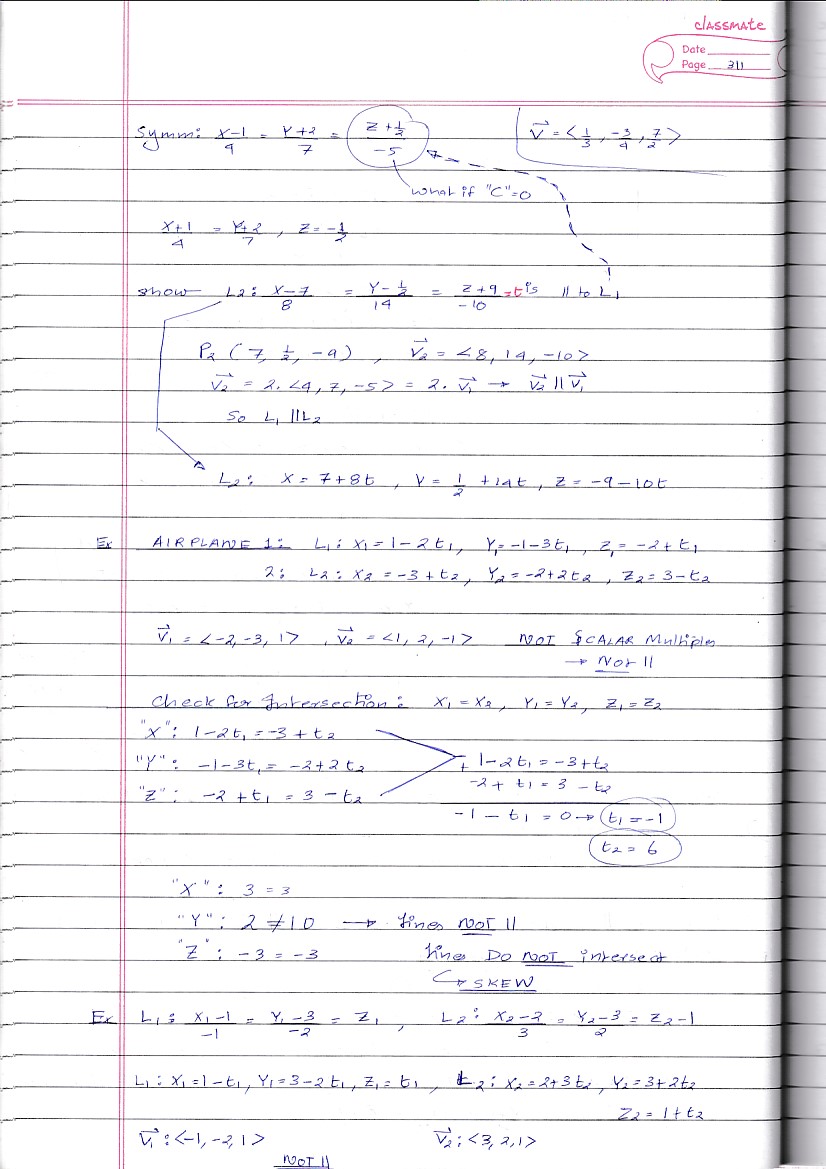 classmate
Date
Page 311
Symm: X-1/4 = Y+2/7 = Z+½/-5
V⃗ = <1/3, -3/4, 7/2>
what if "C"=0
X+1/4 = Y+2/7 , Z = -1/2
show L2: X-7/8 = Y-½/14 = Z+9/-10 =t is || to L1
P2 (7, ½, -9) , V⃗2 = <8, 14, -10>
V⃗2 = 2. <4, 7, -5> = 2. V⃗1 → V⃗2 || V⃗1
So L1 || L2
L2: X = 7+8t , Y = 1/2 + 14t , Z = -9-10t
Ex AIRPLANE 1: L1: X1 = 1-2t1, Y1 = -1-3t1 , Z1 = -2+t1
2: L2: X2 = -3+t2, Y2 = -2+2t2 , Z2 = 3-t2
V⃗1 = <-2, -3, 1> , V⃗2 = <1, 2, -1> NOT SCALAR Multiples
→ Not ||
Check for Intersection: X1 = X2, Y1 = Y2, Z1 = Z2
"X": 1-2t1 = -3+t2
"Y": -1-3t1 = -2+2t2
+ 1-2t1 = -3+t2
"Z": -2+t1 = 3-t2
-2+t1 = 3-t2
-1-t1 = 0 → t1 = -1
t2 = 6
"X": 3 = 3
"Y": 2 ≠ 10 → lines NOT ||
"Z": -3 = -3 lines DO NOT intersect
↳ SKEW
Ex L1: X1-1/-1 = Y1-3/-2 = Z1 , L2: X2-2/3 = Y2-3/2 = Z2-1
L1: X1 = 1-t1, Y1 = 3-2t1, Z1 = t1 , L2: X2 = 2+3t2, Y2 = 3+2t2
Z2 = 1+t2
V⃗1: <-1, -2, 1> V⃗2: <3, 2, 1>
NOT ||